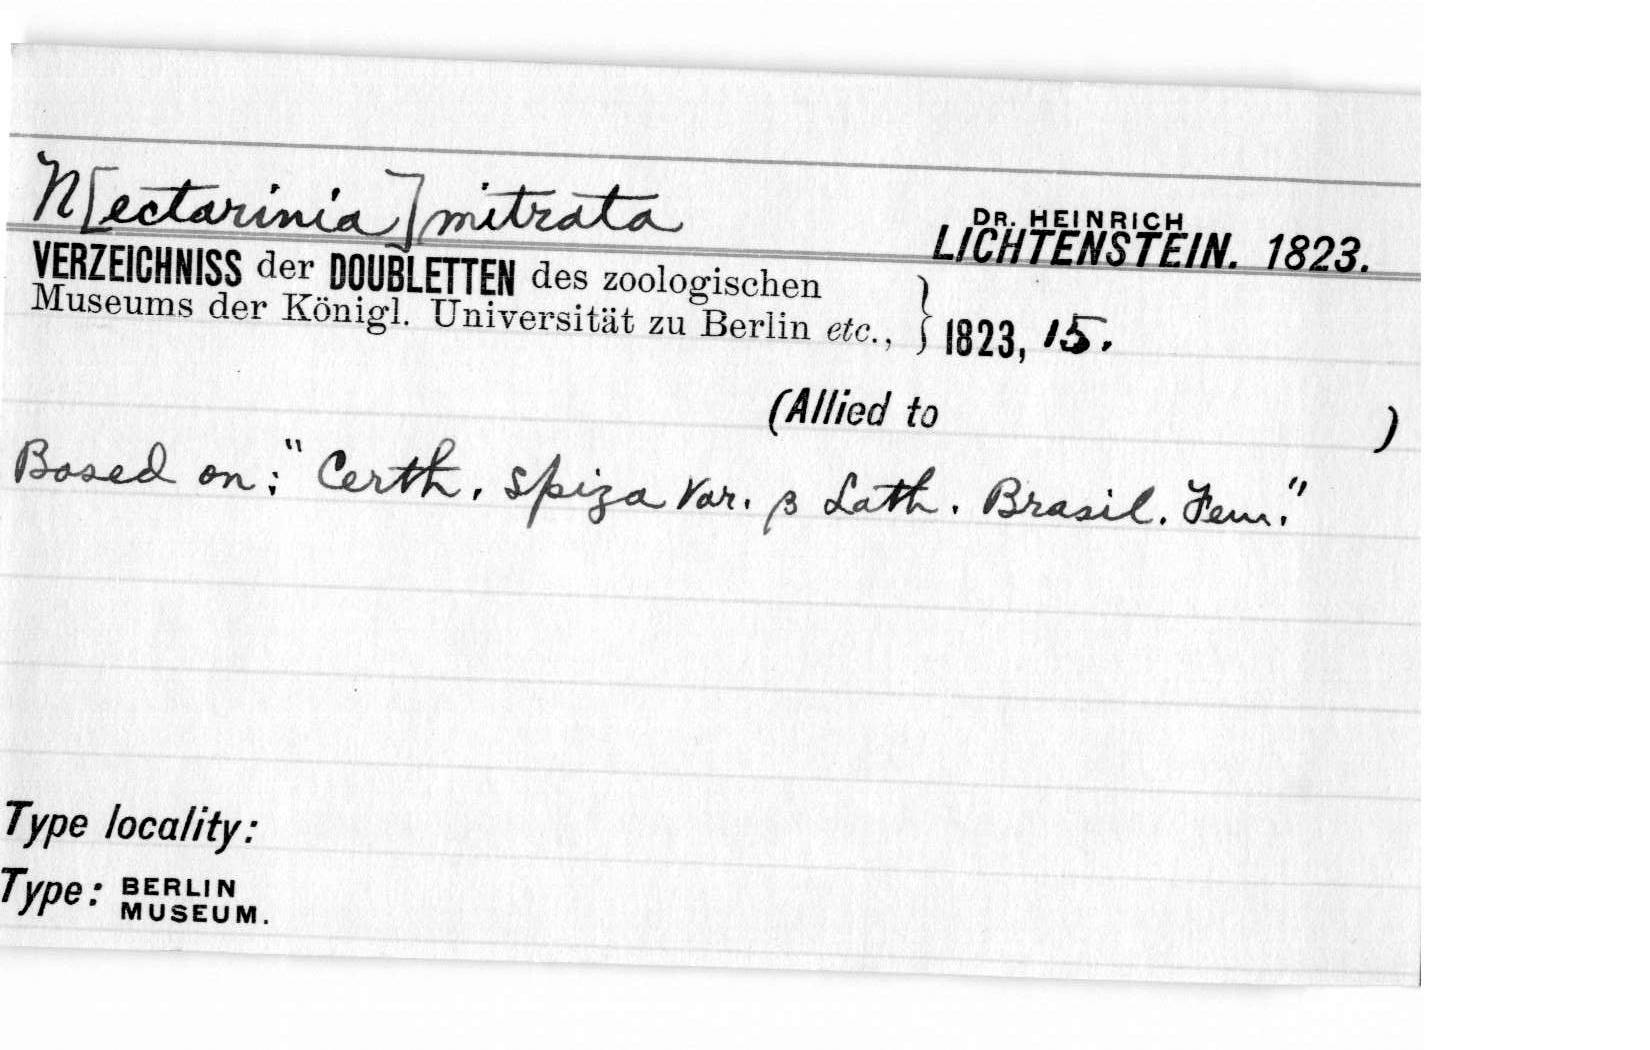 N[ectarinia] mitrata
DR. HEINRICH
LICHTENSTEIN. 1823.
VERZEICHNISS der DOUBLETTEN des zoologischen
Museums der Königl. Universität zu Berlin etc., } 1823, 15.
(Allied to )
Based on: "Certh. spiza Var. β Lath. Brasil. Fem."
Type locality:
Type: BERLIN
MUSEUM.